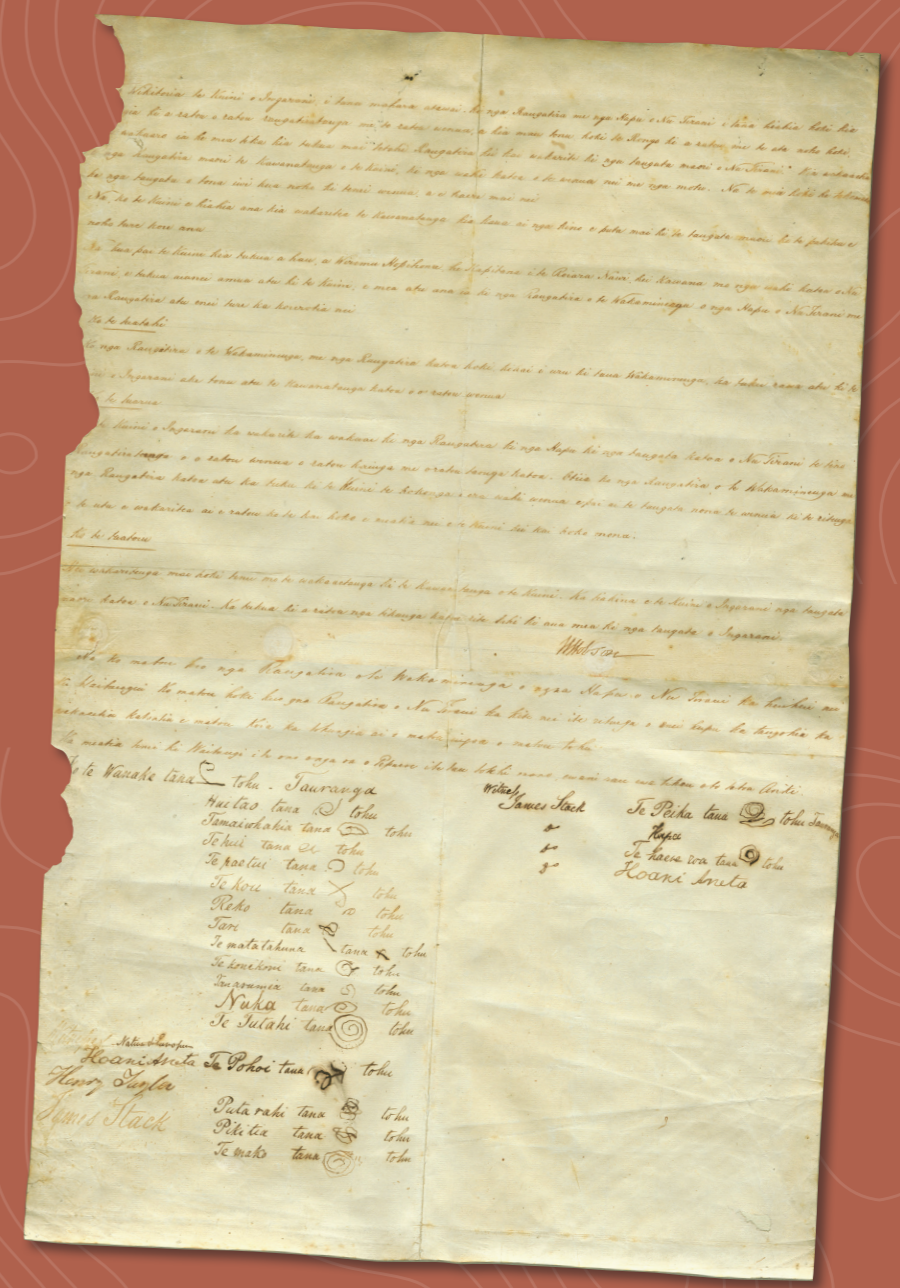 Wikitoria te Kuini o Ingarani, i tana mahara atawai ki nga Rangatira me nga Hapu o Nu Tirani i tana hiahia hoki kia
ia ki a ratou o ratou rangatiratanga me to ratou wenua, a kia mau tonu hoki te Rongo ki a ratou me te ata noho hoki,
wakaaro ia he mea tika kia tukua mai tetahi Rangatira hei kai wakarite ki nga tangata maori o Nu Tirani. Kia wakaaetia
nga Rangatira maori te Kawanatanga o te Kuini, ki nga wahi katoa o te wenua nei me nga motu. Na te mea hoki he tokomaha
ke nga tangata o tona iwi kua noho ki tenei wenua, a e haere mai nei
Na, ko te Kuini e hiahia ana kia wakaritea te Kawanatanga kia kaua ai nga kino e puta mai ki te tangata maori ki te pakeha e
noho ture kore ana
Na kua pai te Kuini kia tukua a hau, a Wiremu Hopihona he Kapitana i te Roiara Nawi hei Kawana mo nga wahi katoa o Nu
Tirani, e tukua aianei amua atu ki te Kuini, e mea atu ana ia ki nga Rangatira o te Wakaminenga o nga Hapu o Nu Tirani me
ra Rangatira atu enei ture ka korerotia nei
Ko te tuatahi
Ko nga Rangatira o te Wakaminenga, me nga Rangatira katoa hoki, kihai i uru ki taua Wakaminenga, ka tuku rawa atu ki te
o Ingarani ake tonu atu te Kawanatanga katoa o o ratou wenua
te tuarua
te Kuini o Ingarani ka wakarite ka wakaae ki nga Rangatira ki nga Hapu ki nga tangata katoa o Nu Tirani te tino
Rangatiratanga o o ratou wenua o ratou kainga me o ratou taonga katoa. Otiia ko nga Rangatira o te Wakaminenga me
nga Rangatira katoa atu ka tuku ki te Kuini te hokonga o era wahi wenua e pai ai te tangata nona te wenua ki te ritenga
o te utu e wakaritea ai e ratou ko te kai hoko e meatia nei e te Kuini hei kai hoko mona.
Ko te tuatoru
Hei wakaritenga mai hoki tenei mo te wakaaetanga ki te Kawanatanga o te Kuini. Ka tiakina e te Kuini o Ingarani nga tangata
maori katoa o Nu Tirani. Ka tukua ki a ratou nga tikanga katoa rite tahi ki ana mea ki nga tangata o Ingarani.
WHobson
Na ko matou ko nga Rangatira o te Wakaminenga o nga Hapu o Nu Tirani ka huihui nei
ki Waitangi Ko matou hoki ko nga Rangatira o Nu Tirani ka kite nei i te ritenga o enei kupu ka tangohia ka
wakaaetia katoatia e matou. Koia ka tohungia ai o matou ingoa o matou tohu
Ka meatia tenei ki Waitangi i te ono o nga ra o Pepuere i te tau kotahi mano, e waru rau e wa tekau o to tatou Ariki.
Ko te Wanake tana tohu - Tauranga
Huitao tana tohu
Tamaiwhakia tana tohu
Te kui tana tohu
Te paetui tana tohu
Te kou tana tohu
Reko tana tohu
Tari tana tohu
Te matatahuna tana tohu
Te konikoni tana tohu
Tauaraumia tana tohu
Nuka tana tohu
Te Tutahi tana tohu
Hoani Aneta Te Pohoi tana tohu
Henry Tayler
James Stack
Putarahi tana tohu
Pikitia tana tohu
Te mako tana tohu
Witness
James Stack Te Peika tana tohu Tauranga
Hapu
Te haereroa tana tohu
Hoani Aneta